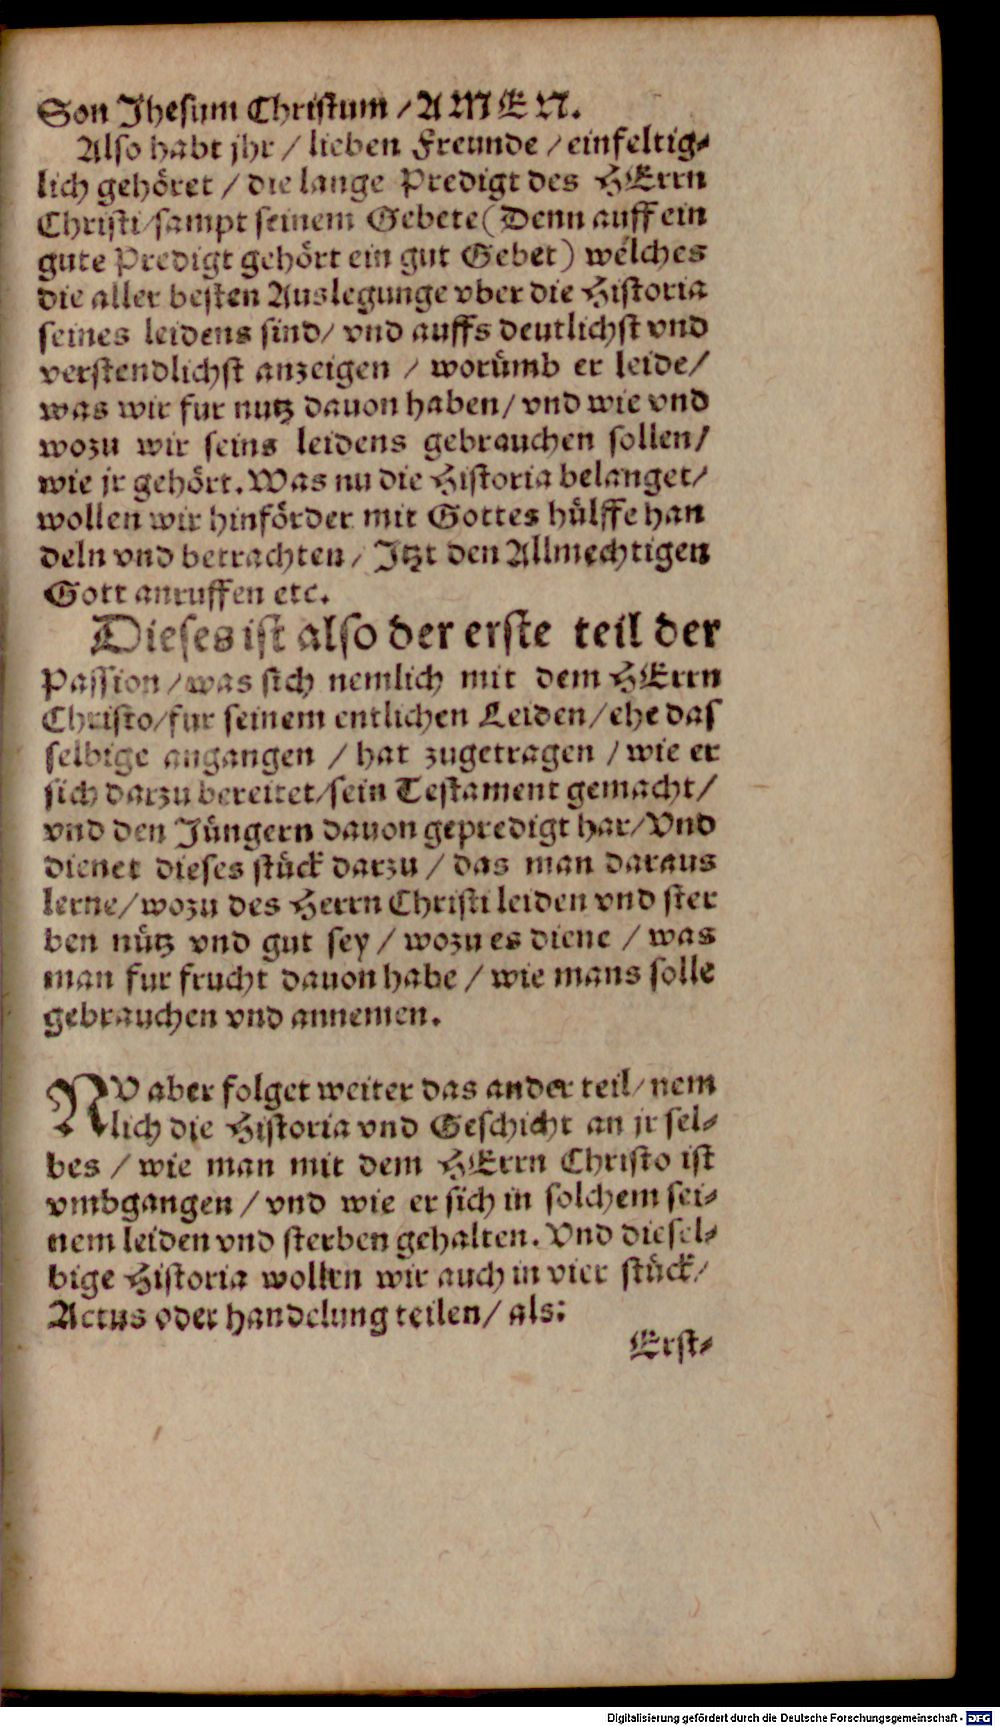 Son Jhesum Christum / AMEN.
Also habt jhr / lieben Freunde / einfeltig-
lich gehöret / die lange Predigt des HErrn
Christi / sampt seinem Gebete (Denn auff ein
gute Predigt gehört ein gut Gebet) welches
die aller besten Auslegunge vber die Historia
seines leidens sind / vnd auffs deutlichst vnd
verstendlichst anzeigen / worümb er leide /
was wir fur nutz dauon haben / vnd wie vnd
wozu wir seins leidens gebrauchen sollen /
wie jr gehört. Was nu die Historia belanget /
wollen wir hinförder mit Gottes hülffe han
deln vnd betrachten / Jtzt den Allmechtigen
Gott anruffen etc.
Dieses ist also der erste teil der
Passion / was sich nemlich mit dem HErrn
Christo / fur seinem entlichen Leiden / ehe das
selbige angangen / hat zugetragen / wie er
sich darzu bereitet / sein Testament gemacht /
vnd den Jüngern dauon gepredigt hat / Vnd
dienet dieses stück darzu / das man daraus
lerne / wozu des Herrn Christi leiden vnd ster
ben nütz vnd gut sey / wozu es diene / was
man fur frucht dauon habe / wie mans solle
gebrauchen vnd annemen.
NV aber folget weiter das ander teil / nem
lich die Historia vnd Geschicht an jr sel-
bes / wie man mit dem HErrn Christo ist
vmbgangen / vnd wie er sich in solchem sei-
nem leiden vnd sterben gehalten. Vnd diesel-
bige Historia wollen wir auch in vier stück /
Actus oder handelung teilen / als:
Erst-
Digitalisierung gefördert durch die Deutsche Forschungsgemeinschaft - DFG